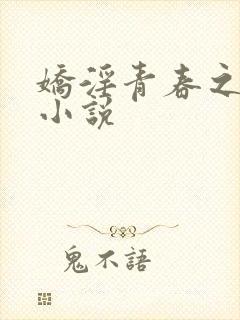 嬌淫青春之
小說
鬼不語